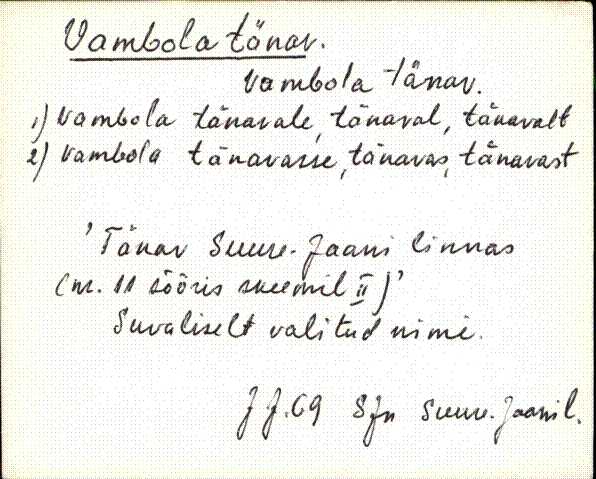 Vambola tänav.
Vambola tänav.
1) Vambola tänavale, tänaval, tänavalt
2) Vambola tänavasse, tänavas, tänavast
'Tänav Suure-Jaani linnas
(nr. 11 sõõris skeemil II)'
Suvaliselt valitud nimi.
J J. 69 SJn Suure-Jaanil.